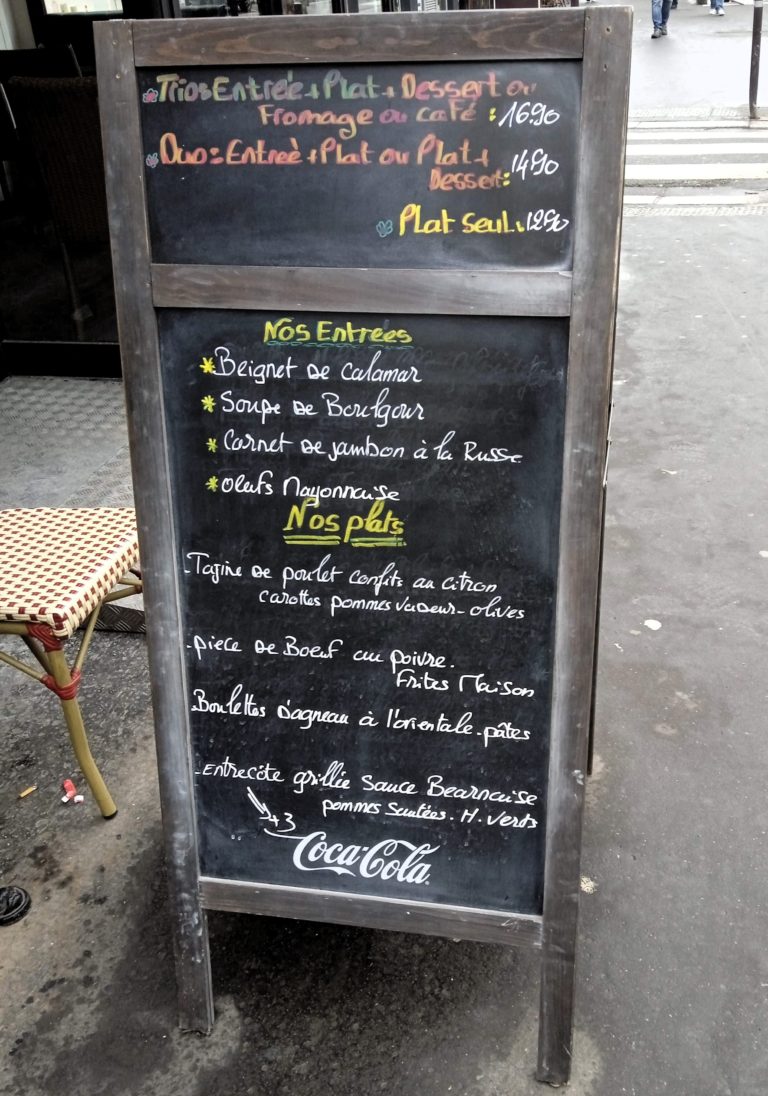 Trios Entreé + Plat + Dessert ou
Fromage ou café : 16.90
Duo : Entreé + Plat ou Plat +
Dessert : 14.90
Plat Seul : 12.90
Nos Entrees
* Beignet de calamar
* Soupe de Boulgour
* Cornet de jambon à la Russe
* oeufs Mayonnaise
Nos plats
- Tajine de poulet confits au citron
carottes pommes vapeur - olives
- pièce de Boeuf au poivre.
Frites Maison
- Boulettes d'agneau à l'orientale - pâtes
- entrecôte grillée sauce Bearnaise
pommes Sautées. H. verts
+3
Coca-Cola